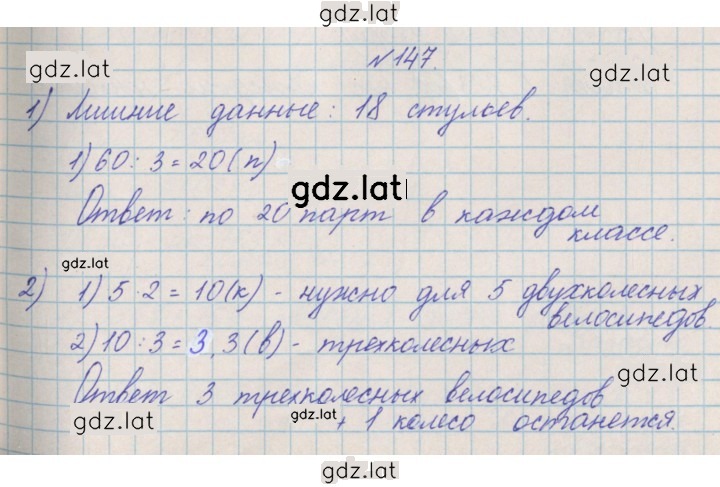 gdz.lat
№147.
gdz.lat
gdz.lat
1) Лишние данные: 18 стульев.
1) 60 : 3 = 20 (п)
gdz.lat
Ответ: по 20 парт в каждом
классе.
gdz.lat
2) 1) 5 · 2 = 10 (к) - нужно для 5 двухколесных
велосипедов.
2) 10 : 3 = 3,3 (в) - трехколесных
gdz.lat
Ответ 3 трехколесных велосипедов
gdz.lat
+ 1 колесо останется.
gdz.lat